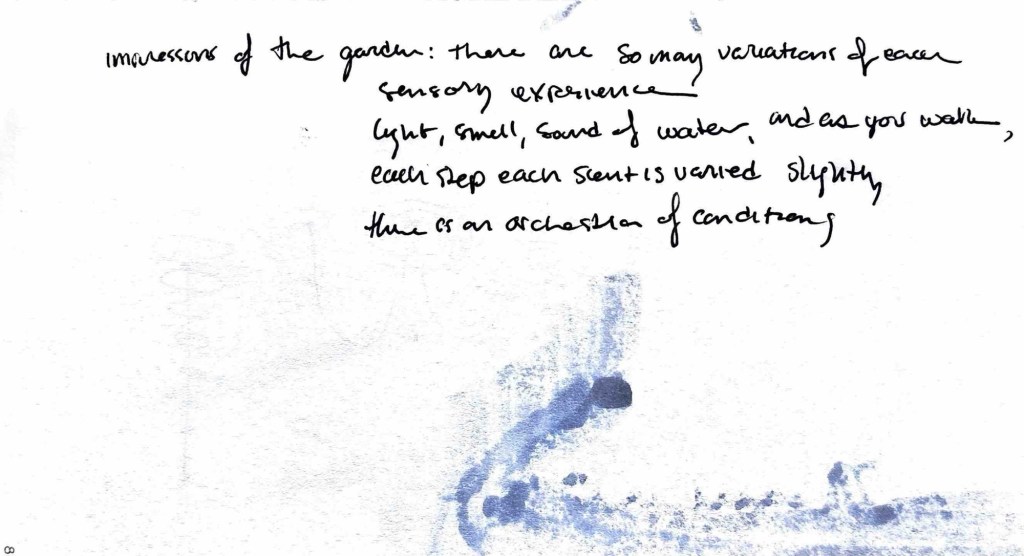 impressions of the garden: there are so many variations of each
sensory experience
light, smell, sound of water, and as you walk,
each step each scent is varied slightly
there is an orchestration of conditions
8